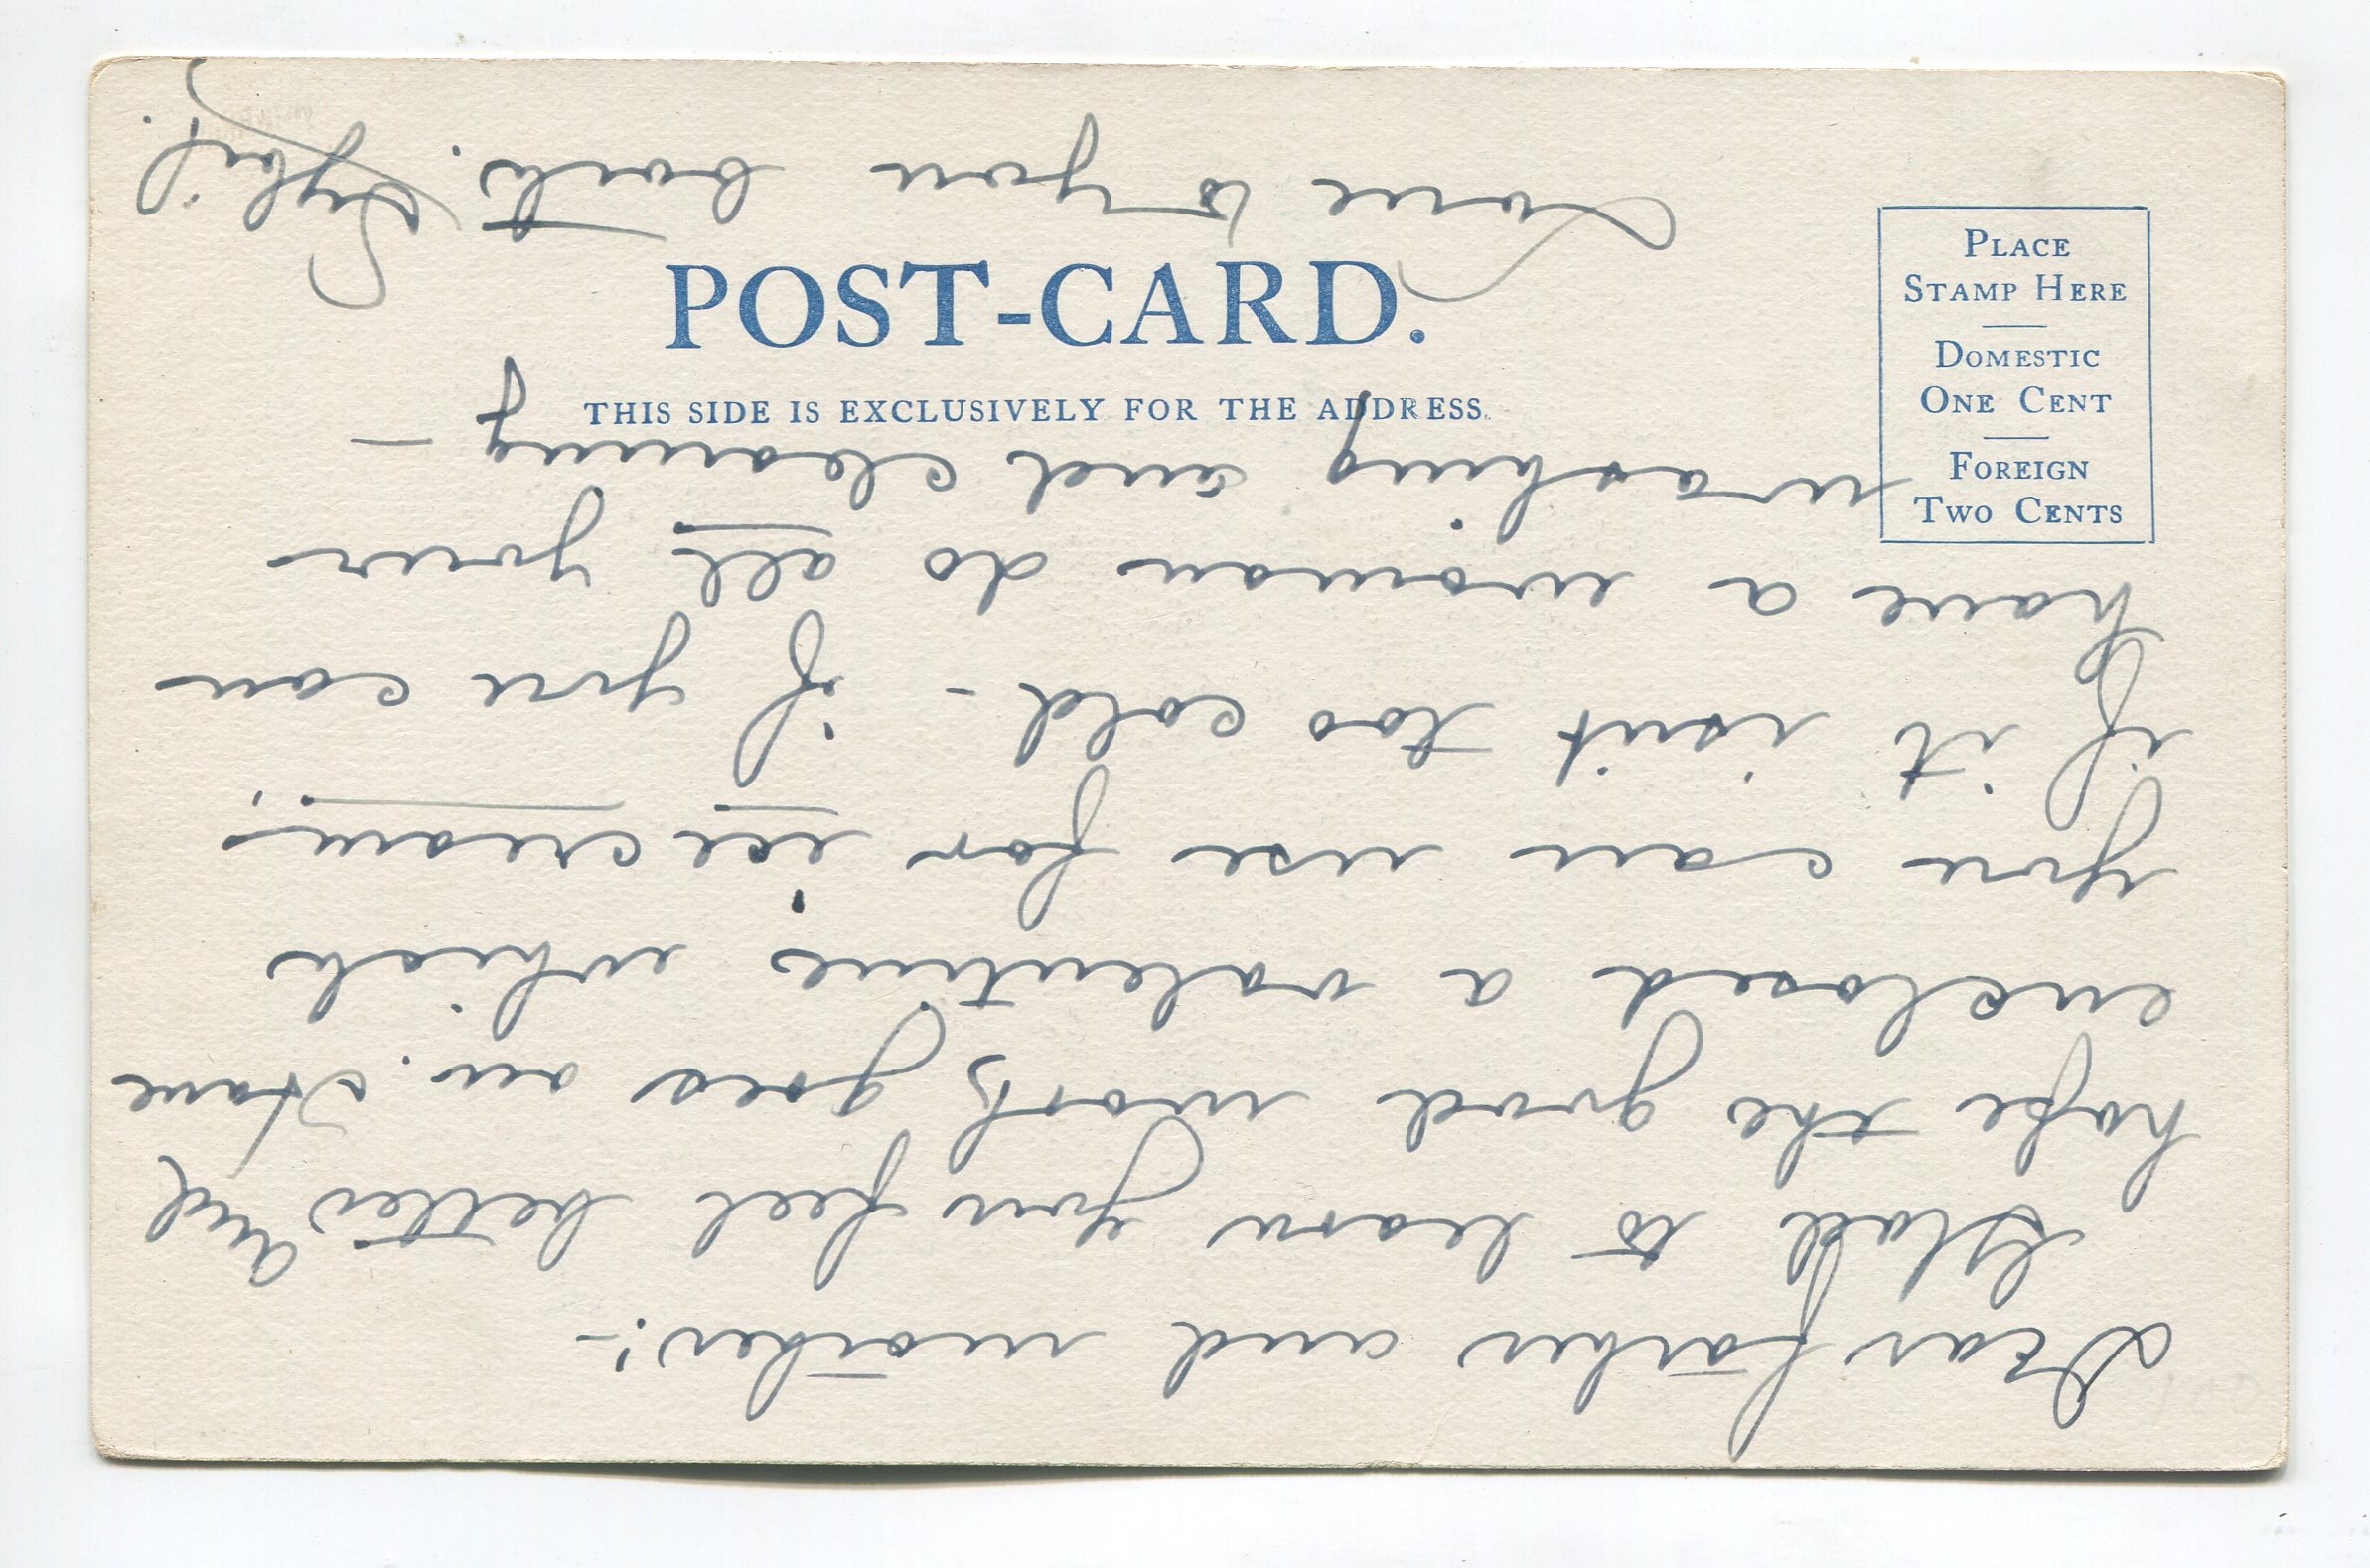 POST-CARD.
THIS SIDE IS EXCLUSIVELY FOR THE ADDRESS.
PLACE
STAMP HERE
DOMESTIC
ONE CENT
FOREIGN
TWO CENTS
Dear father and mother:-
Glad to learn you feel better and
hope the good work goes on. Have
enclosed a valentine which
you can use for ice cream,
if it isn't too cold - if you can
have a woman do all your
washing and cleaning -
Love to you both. Sybil.